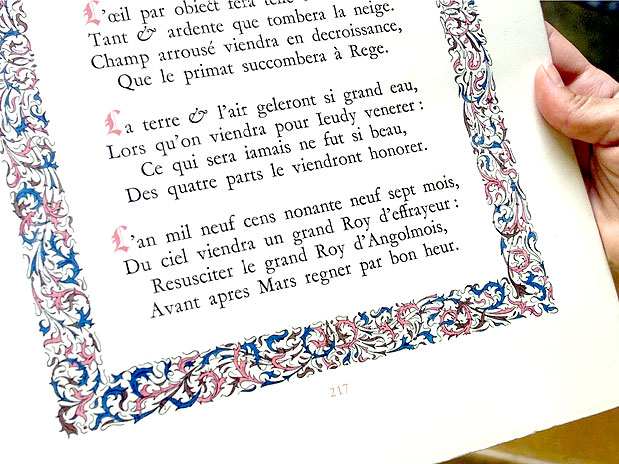 L'œil par obiect fera telle
Tant & ardente que tombera la neige.
Champ arrousé viendra en decroissance,
Que le primat succombera à Rege.
La terre & l'air geleront si grand eau,
Lors qu'on viendra pour Ieudy venerer :
Ce qui sera iamais ne fut si beau,
Des quatre parts le viendront honorer.
L'an mil neuf cens nonante neuf sept mois,
Du ciel viendra un grand Roy d'effrayeur :
Resusciter le grand Roy d'Angolmois,
Avant apres Mars regner par bon heur.
217